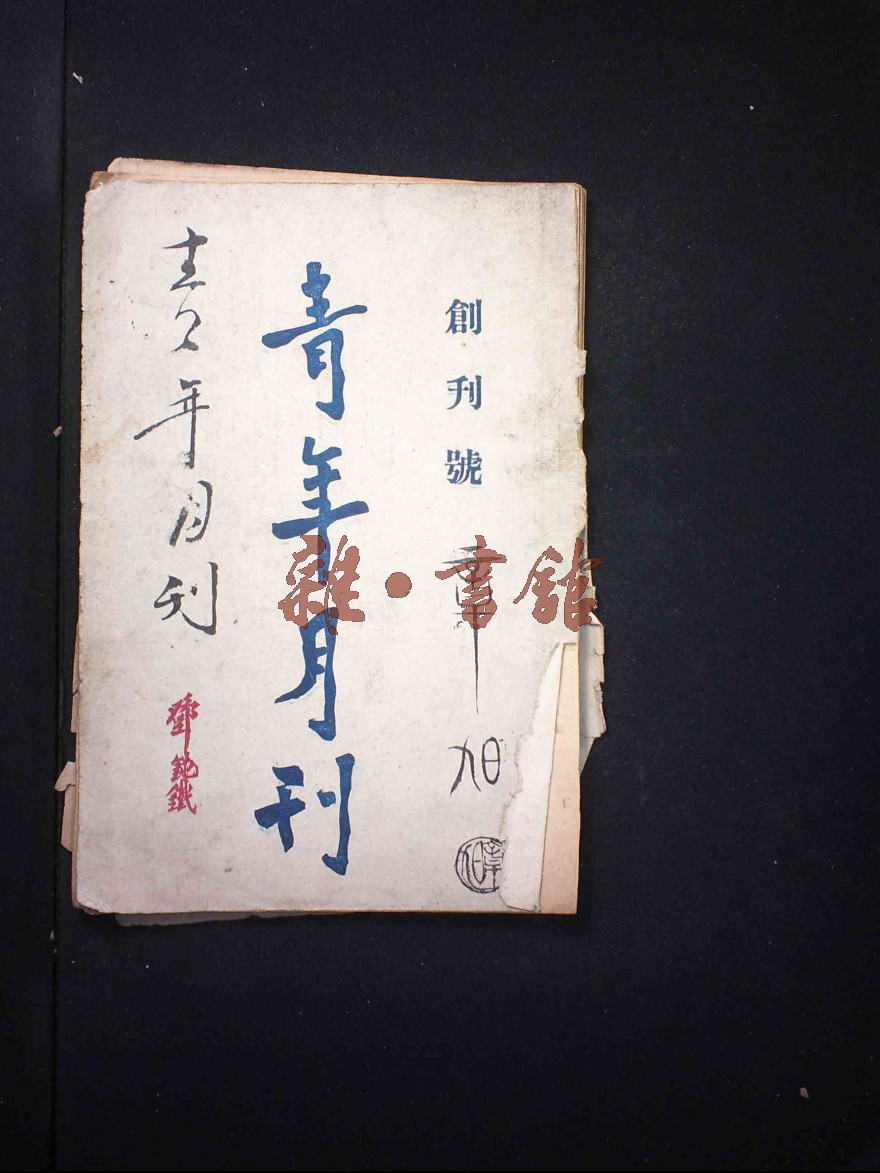 創刊號
章旭
青年月刊
青年月刊
雜·書館